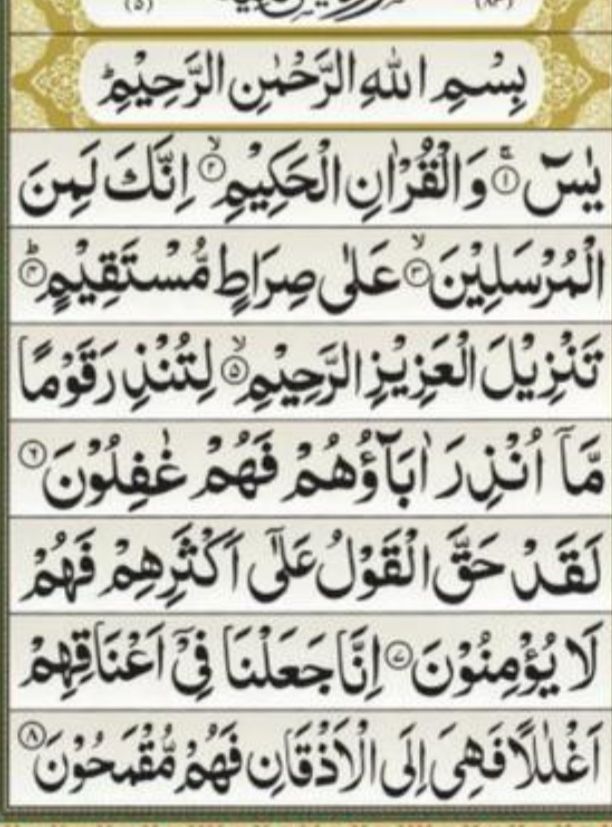 بِسْمِ اللهِ الرَّحْمٰنِ الرَّحِيْمِ
يٰسٓ ۚ﴿۱﴾ وَالْقُرْاٰنِ الْحَكِيْمِ ۙ﴿۲﴾ اِنَّكَ لَمِنَ
الْمُرْسَلِيْنَ ۙ﴿۳﴾ عَلٰى صِرَاطٍ مُّسْتَقِيْمٍ ؕ﴿۴﴾
تَنْزِيْلَ الْعَزِيْزِ الرَّحِيْمِ ۙ﴿۵﴾ لِتُنْذِرَ قَوْمًا
مَّاۤ اُنْذِرَ اٰبَآؤُهُمْ فَهُمْ غٰفِلُوْنَ ﴿۶﴾
لَقَدْ حَقَّ الْقَوْلُ عَلٰٓى اَكْثَرِهِمْ فَهُمْ
لَا يُؤْمِنُوْنَ ﴿۷﴾ اِنَّا جَعَلْنَا فِيْٓ اَعْنَاقِهِمْ
اَغْلٰلًا فَهِيَ اِلَى الْاَذْقَانِ فَهُمْ مُّقْمَحُوْنَ ﴿۸﴾